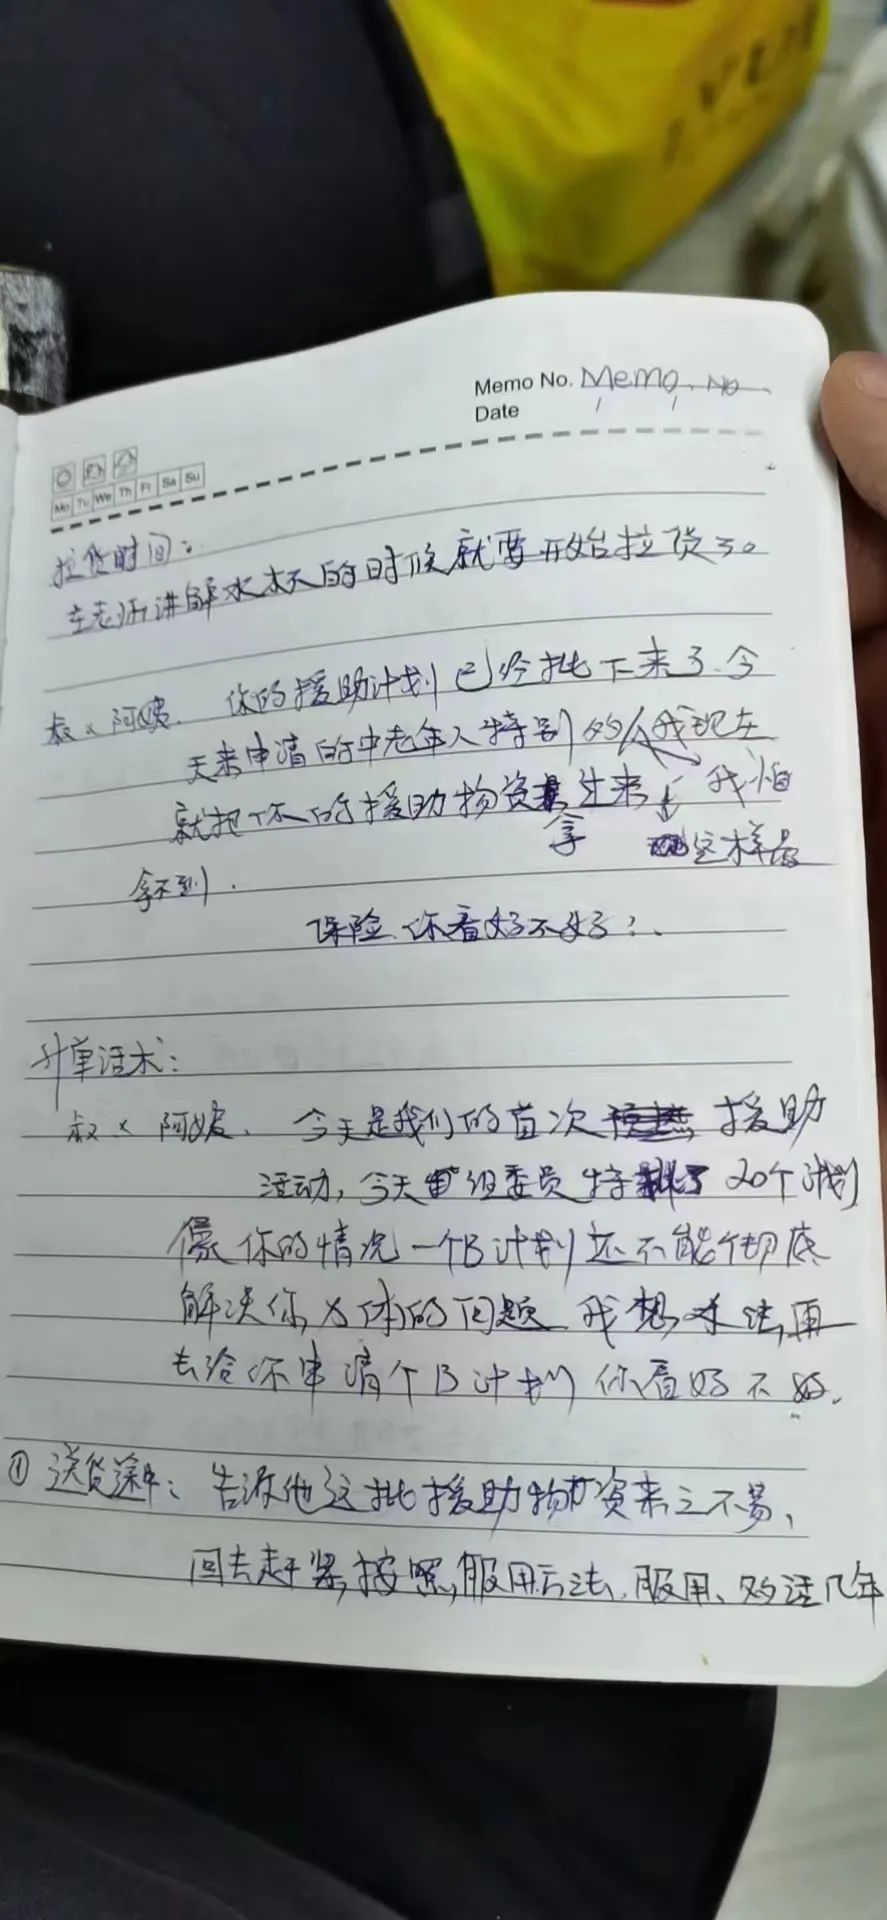 Memo No. Memo. No
Date
Mo Tu We Th Fr Sa Su
拉货时间：
在老师讲解水杯的时候就要开始拉货了。
叔x阿姨. 你的援助计划已经批下来了.今
天来申请的中老年人特别的多 我现在
就把你的援助物资拿出来 我怕
拿不到. 这样最
保险.你看好不好？.
升单话术：
叔x阿姨. 今天是我们的首次 援助
活动，今天 组委员特批了20个计划
像你的情况一个B计划还不能彻底
解决你身体的问题 我想办法,再
去给你申请个B计划 你看好不好.
① 送货途中：告诉他这批援助物资来之不易，
回去赶紧,按照,服用方法,服用、多活几年